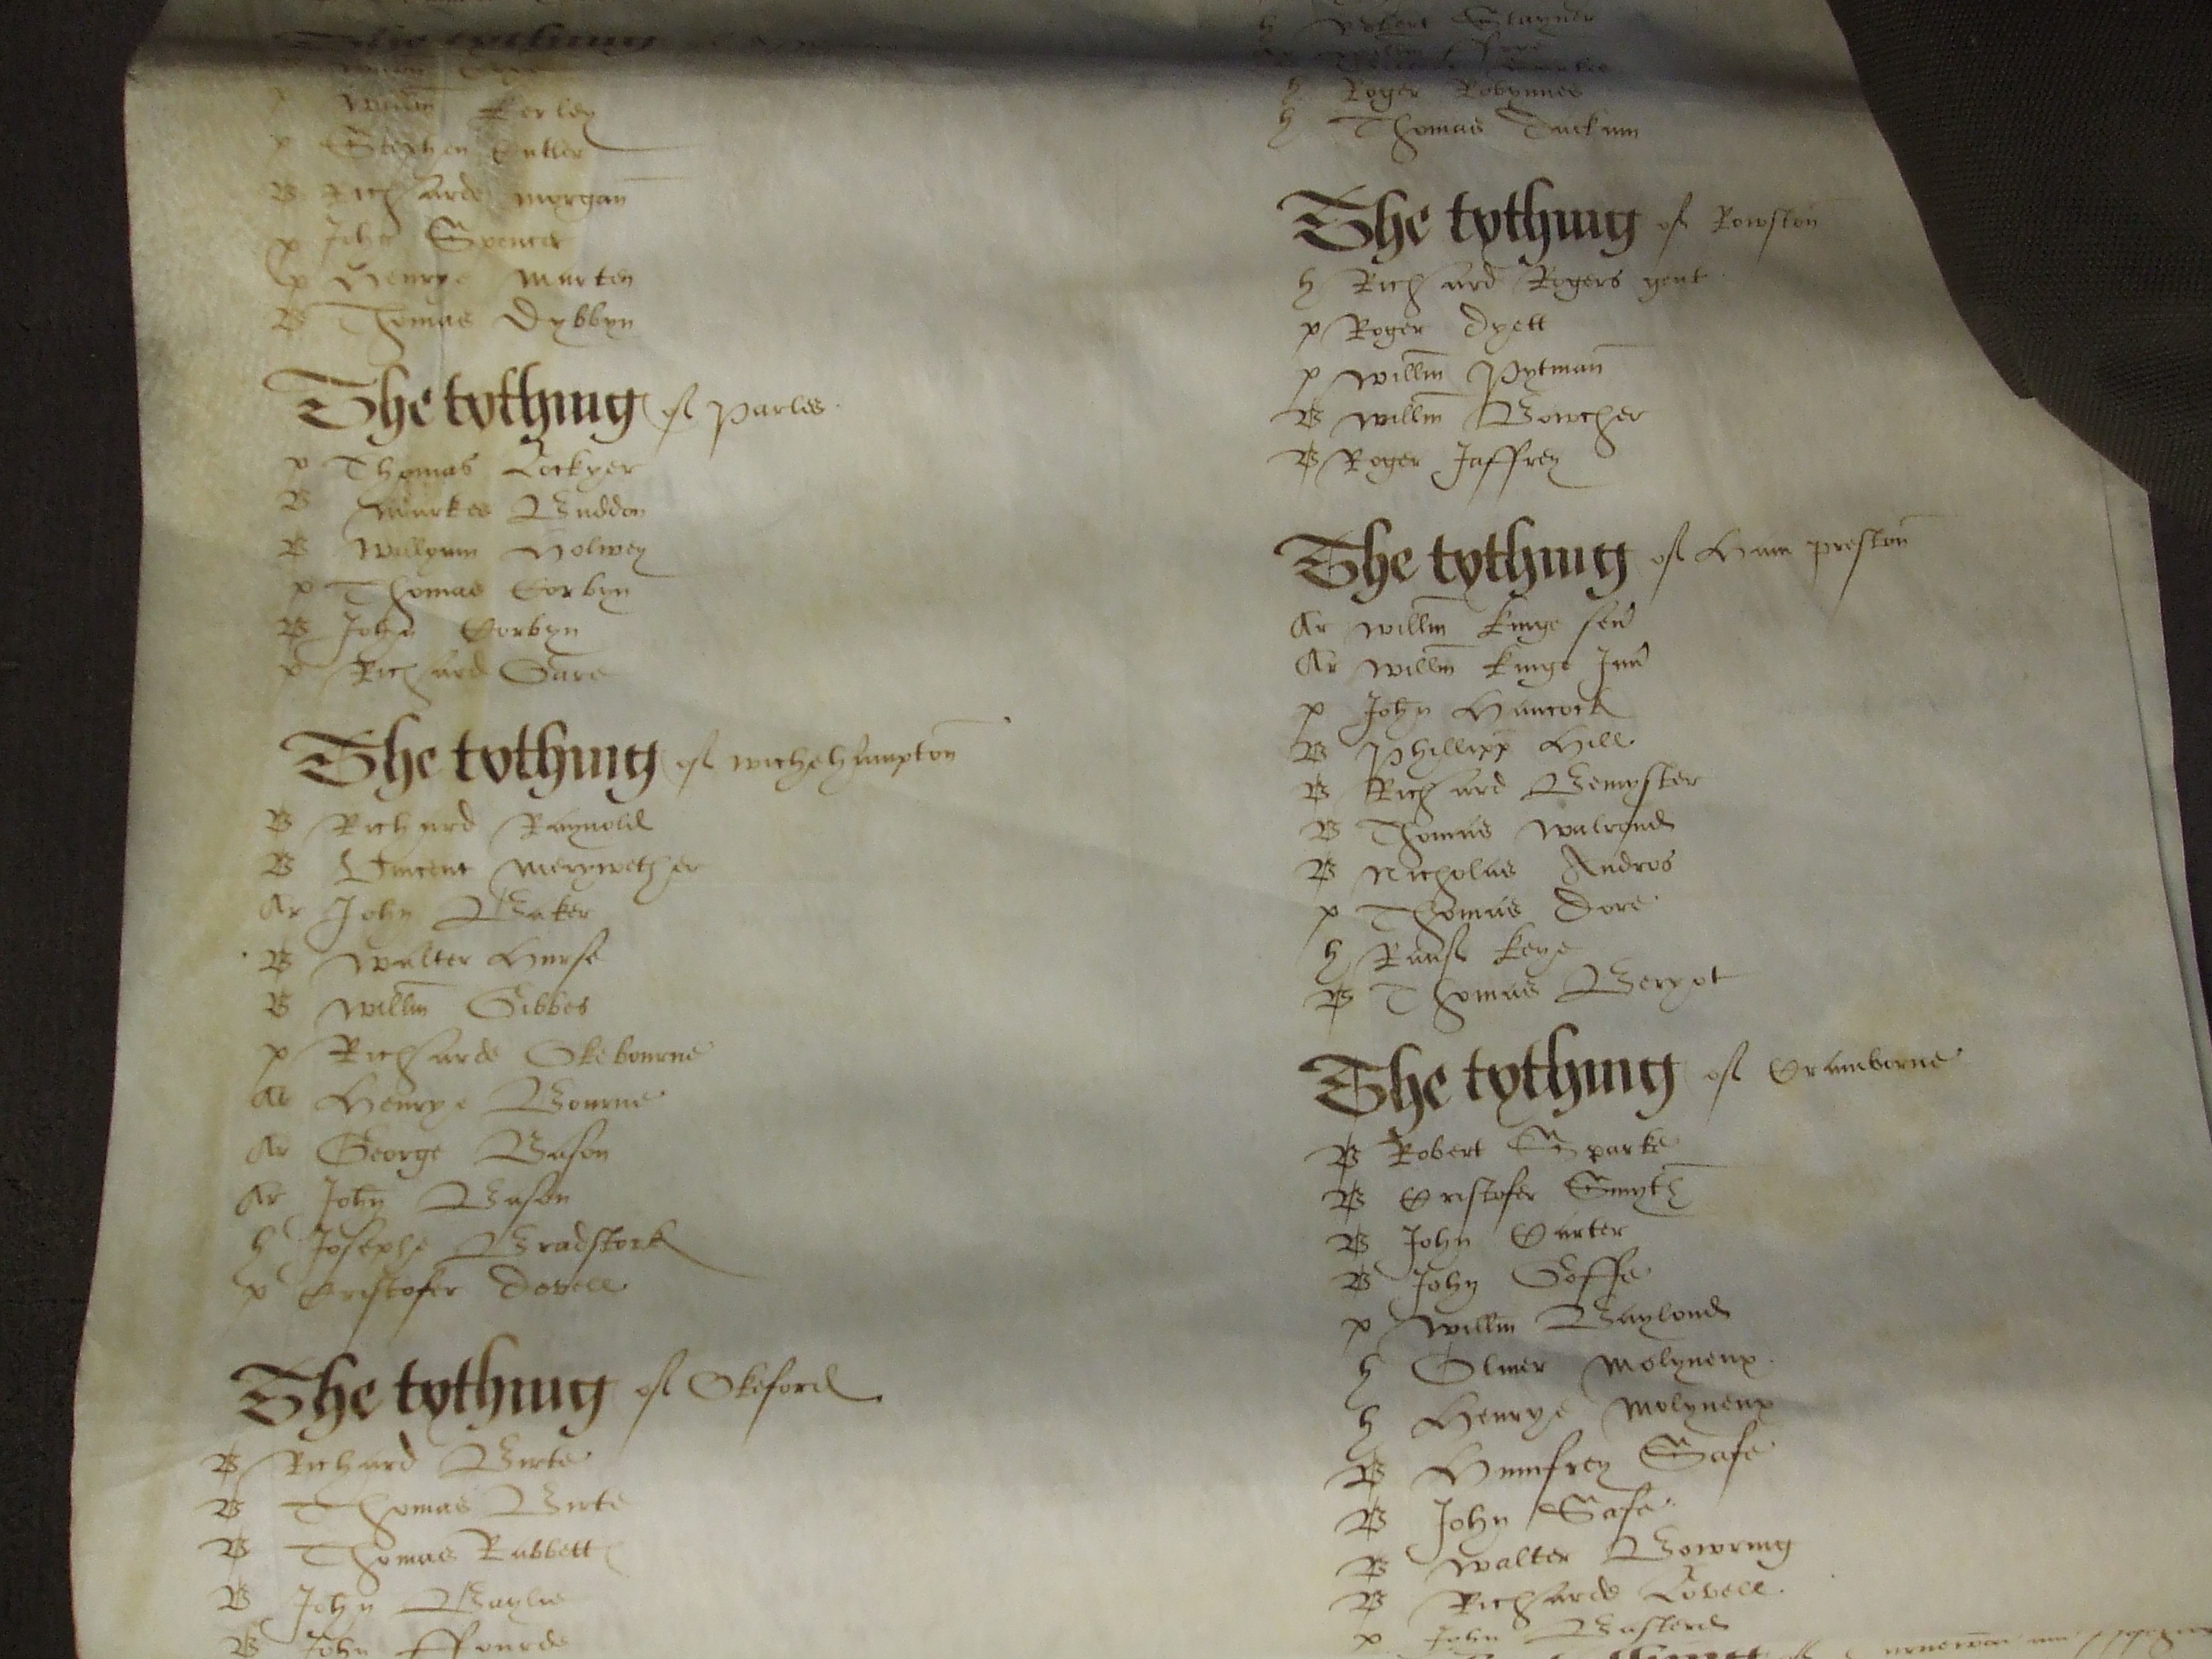 The tything
Willm Kerley
p Stephen Cutler
B Richarde Morgan
p John Spencer
p Henrye Marten
B Thomas Dybbyn
The tything of Parles
p Thomas Lockyer
B Markes Buddon
B Willyam Holwey
p Thomas Corbyn
B John Corbyn
p Richard Gare
The tything of Wichehampton
B Richard Raynold
B Vincent Merywether
Ar John Baker
B Walter Hurse
B Willm Gibbes
p Richarde Okebourne
Ar Henrye Bourne
Ar George Bason
Ar John Bason
h Josephe Bradstock
p Cristofer Dovell
The tything of Okeford
B Richard Birte
B Thomas Birte
B Thomas Rabbett
B John Baylie
B John ffourde
h Robert Stayner
h Roger Robynnes
h Thomas Duckum
The tything of Rowston
h Richard Rogers gent
p Roger Dyett
p Willm Pytman
B Willm Bowcher
B Roger Jaffrey
The tything of Ham preston
Ar Willm Kinge sen
Ar Willm Kinge Jun
p John Hancock
B Phillipp Hill
B Richard Bemyster
B Thomas Walrond
B Nicholas Andros
p Thomas Dore
h Rauf Keye
B Thomas Beryot
The tything of Cramborne
B Robert Sparke
B Cristofer Smyth
B John Carter
B John Goffe
p Willm Baylond
h Olmer Molyneux
h Henrye Molyneux
B Humfrey Safe
B John Safe
B Walter Bowring
B Richarde Lovell
p John Basterd